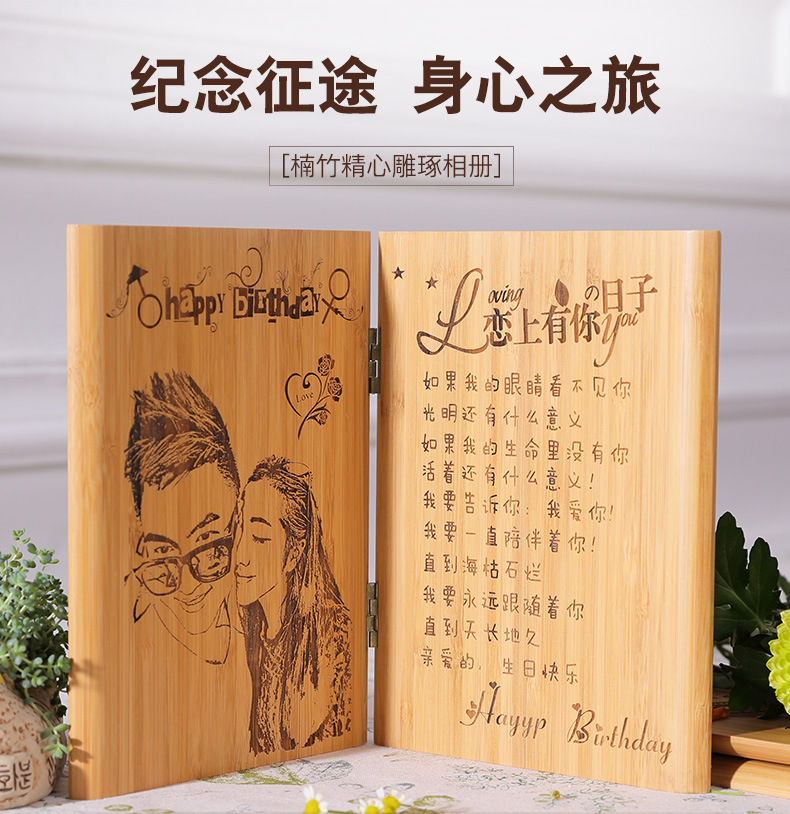 纪念征途 身心之旅
[楠竹精心雕琢相册]
happy birthday
Love
Loving
恋上有你の日子
you
如果我的眼睛看不见你
光明还有什么意义
如果我的生命里没有你
活着还有什么意义!
我要告诉你: 我爱你!
我要一直陪伴着你!
直到海枯石烂
我要永远跟随着你
直到天长地久
亲爱的, 生日快乐
Hayyp Birthday